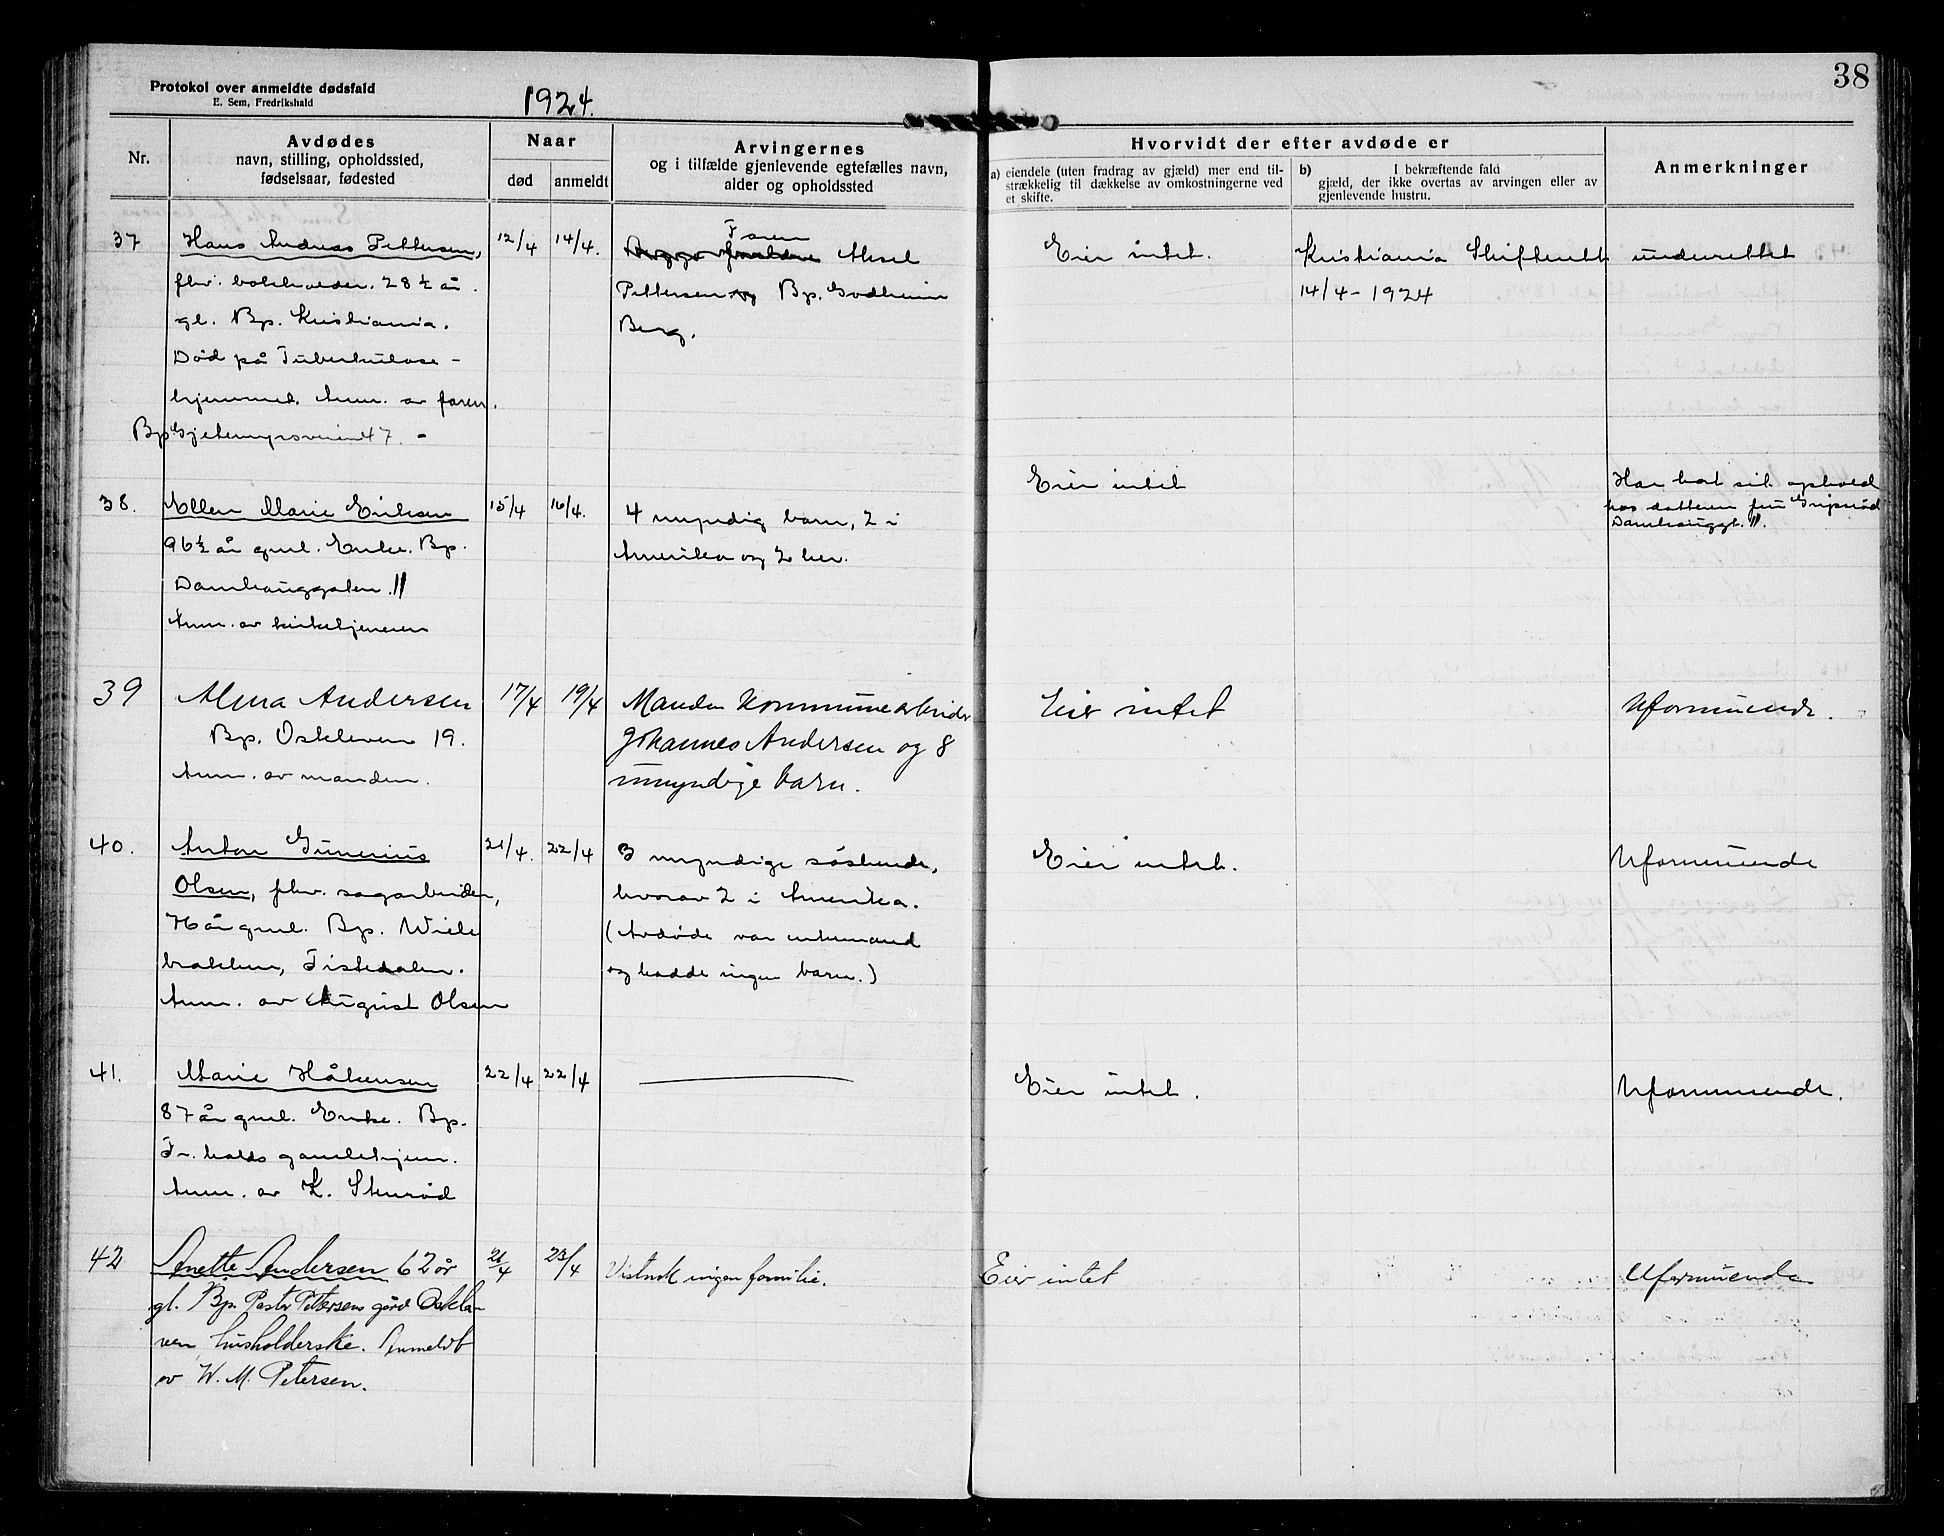 38
Protokol over anmeldte dødsfald
E. Sem, Fredrikshald
1924.
Nr.
Avdødes
navn, stilling, opholdssted,
fødselsaar, fødested
Naar
død
anmeldt
Arvingernes
og i tilfælde gjenlevende egtefælles navn,
alder og opholdssted
Hvorvidt der efter avdøde er
a) eiendele (uten fradrag av gjæld) mer end til-
strækkelig til dækkelse av omkostningerne ved
et skifte.
b) I bekræftende fald
gjæld, der ikke overtas av arvingen eller av
gjenlevende hustru.
Anmerkninger
37
Hans Andreas Pettersen,
fhv. bokholder. 28 ½ år
gl. Bp. Kristiania.
Død på Tuberkulose-
hjemmet. Anm. av faren.
Bp Gjetemyrsveien 47. -
12/4
14/4.
Faren
Begge forældre Aksel
Pettersen og Bp. Godheim
Berg.
Eier intet.
Kristiania Skifterett underrettet
14/4 - 1924
38.
Ellen Marie Eriksen
96½ år gml. Enke. Bp.
Damhauggaten. 11
Anm. av kirketjeneren
15/4
16/4.
4 myndig barn, 2 i
Amerika og 2 her.
Eier intet
Har hat sit ophold
hos datteren fru
Damhauggt. 11.
39
Alma Andersen
Bp. Oskleven 19.
Anm. av manden.
17/4
19/4
Manden Kommunearbeider
Johannes Andersen og 8
umyndige barn.
Eier intet
Uformuende.
40.
Anton Gunerius
Olsen, fhv. sagarbeider,
år gml. Bp. Wiele
bakken, Tistedalen.
Anm. av August Olsen
21/4.
22/4
3 myndige søskende,
hvorav 2 i Amerika.
(Avdøde var enkemand
og hadde ingen barn.)
Eier intet.
Uformuende
41.
Marie Håkensen
87 år gml. Enke. Bp.
Fr. halds gamlehjem.
Anm. av K. Stenrød
22/4
22/4
Eier intet.
Uformuende.
42
Anette Andersen 62 år
gl. Bp. Pastor Petersens gård Oskle
ven, husholderske. Anmeldt
av W. M. Petersen.
21/4
23/4
Vistnok ingen familie.
Eier intet
Uformuende